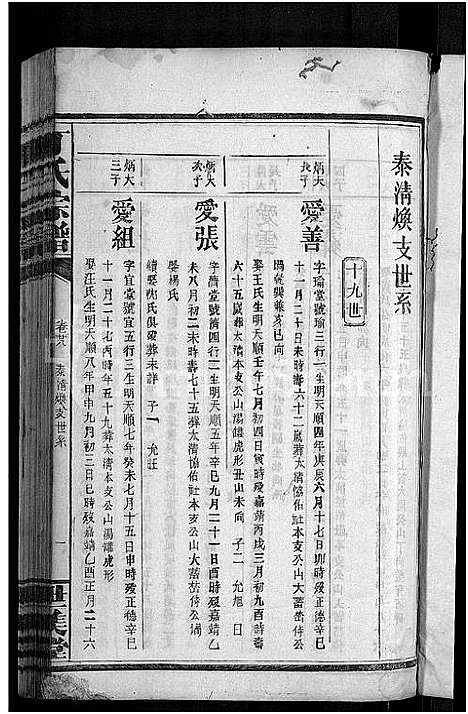 泰清煥支世系
十九世
炳大
長子
愛善
字瑜堂號瑜三行一生明天順四年庚辰六月十七日卯時歿正德辛巳
十一月二十日未時壽六十二歲葬太清協佑社本支公山大蓄茔傍公
塢乾巽兼亥巳向
娶王氏生明天順壬午七月初四日寅時歿嘉靖丙戌三月初九酉時壽
六十五歲葬太清本支公山湯鑵虎形丑山未向 子二 允旭 日
炳大
次子
愛張
字濟堂號濟四行二生明天順五年辛巳九月二十一日酉時歿嘉靖乙
未八月初二未時壽七十五葬太清協佑社本支公山大蓄茔傍公塢
娶楊氏
續娶沈氏俱歿葬未詳 子一 允旺
炳大
三子
愛組
字宜堂號宜五行三生明天順七年癸未七月十五日申時歿正德辛巳
十一月二十七丙時年五十九葬太清本支公山湯鑵虎形
娶汪氏生明天順八年甲申九月初三日巳時歿嘉靖乙酉正月二十六
氏宗譜
泰清煥支世系
一